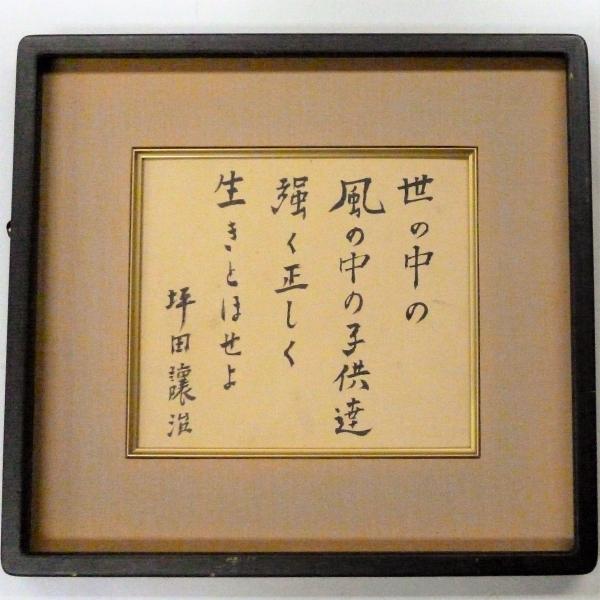 世の中の
風の中の子供達
強く正しく
生きとほせよ
坪田譲治